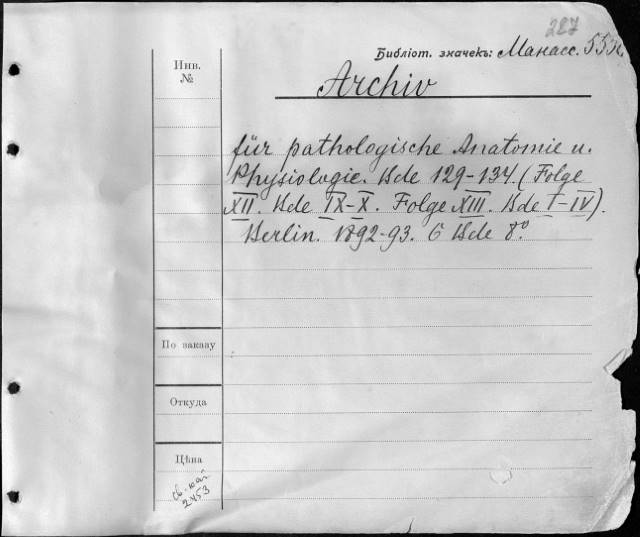 227
Библіот. значекъ: Манасс. 553
Инв.
№
Archiv
für pathologische Anatomie u.
Physiologie. Bde 129-134. (Folge
XII. Bde IX-X. Folge XIII. Bde I-IV).
Berlin. 1892-93. 6 Bde 8°
По заказу
Откуда
Цѣна
2453